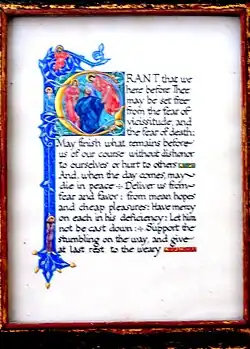 GRANT that we
here before Thee
may be set free
from the fear of
vicissitude, and
the fear of death:
May finish what remains before
us of our course without dishonor
to ourselves or hurt to others
And, when the day comes, may
die in peace ÷ Deliver us from
fear and favor: from mean hopes
and cheap pleasures: Have mercy
on each in his deficiency: Let him
not be cast down: ÷ Support the
stumbling on the way, and give
at last rest to the weary